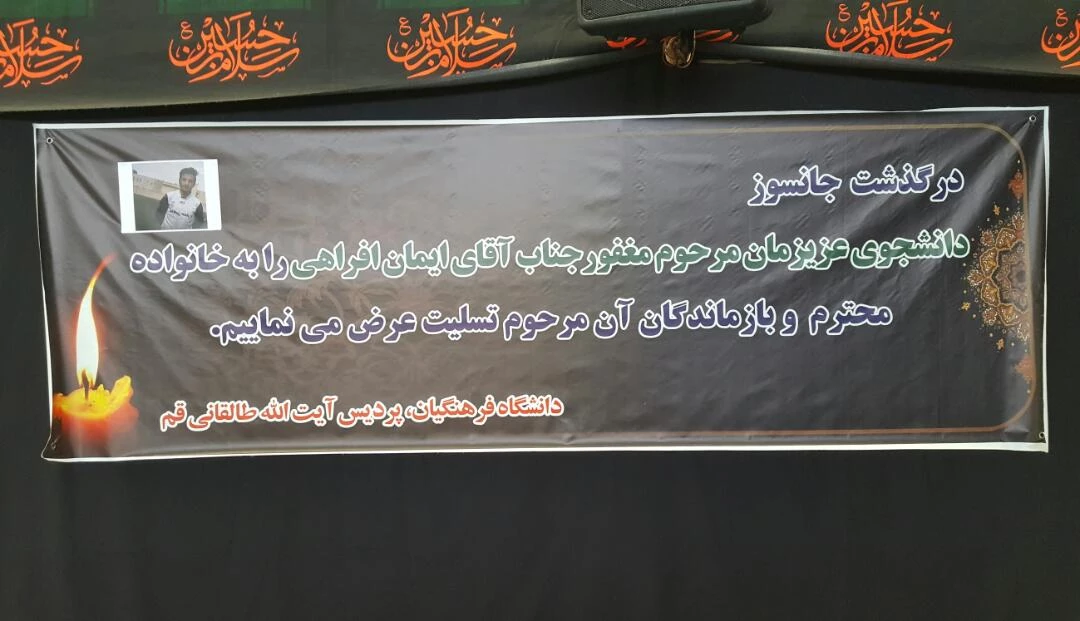 سلام بر حسین ع
سلام بر حسین ع
سلام بر حسین ع
سلام بر حسین ع
درگذشت جانسوز
دانشجوی عزیزمان مرحوم مغفور جناب آقای ایمان افراهی را به خانواده
محترم و بازماندگان آن مرحوم تسلیت عرض می نماییم.
دانشگاه فرهنگیان، پردیس آیت الله طالقانی قم